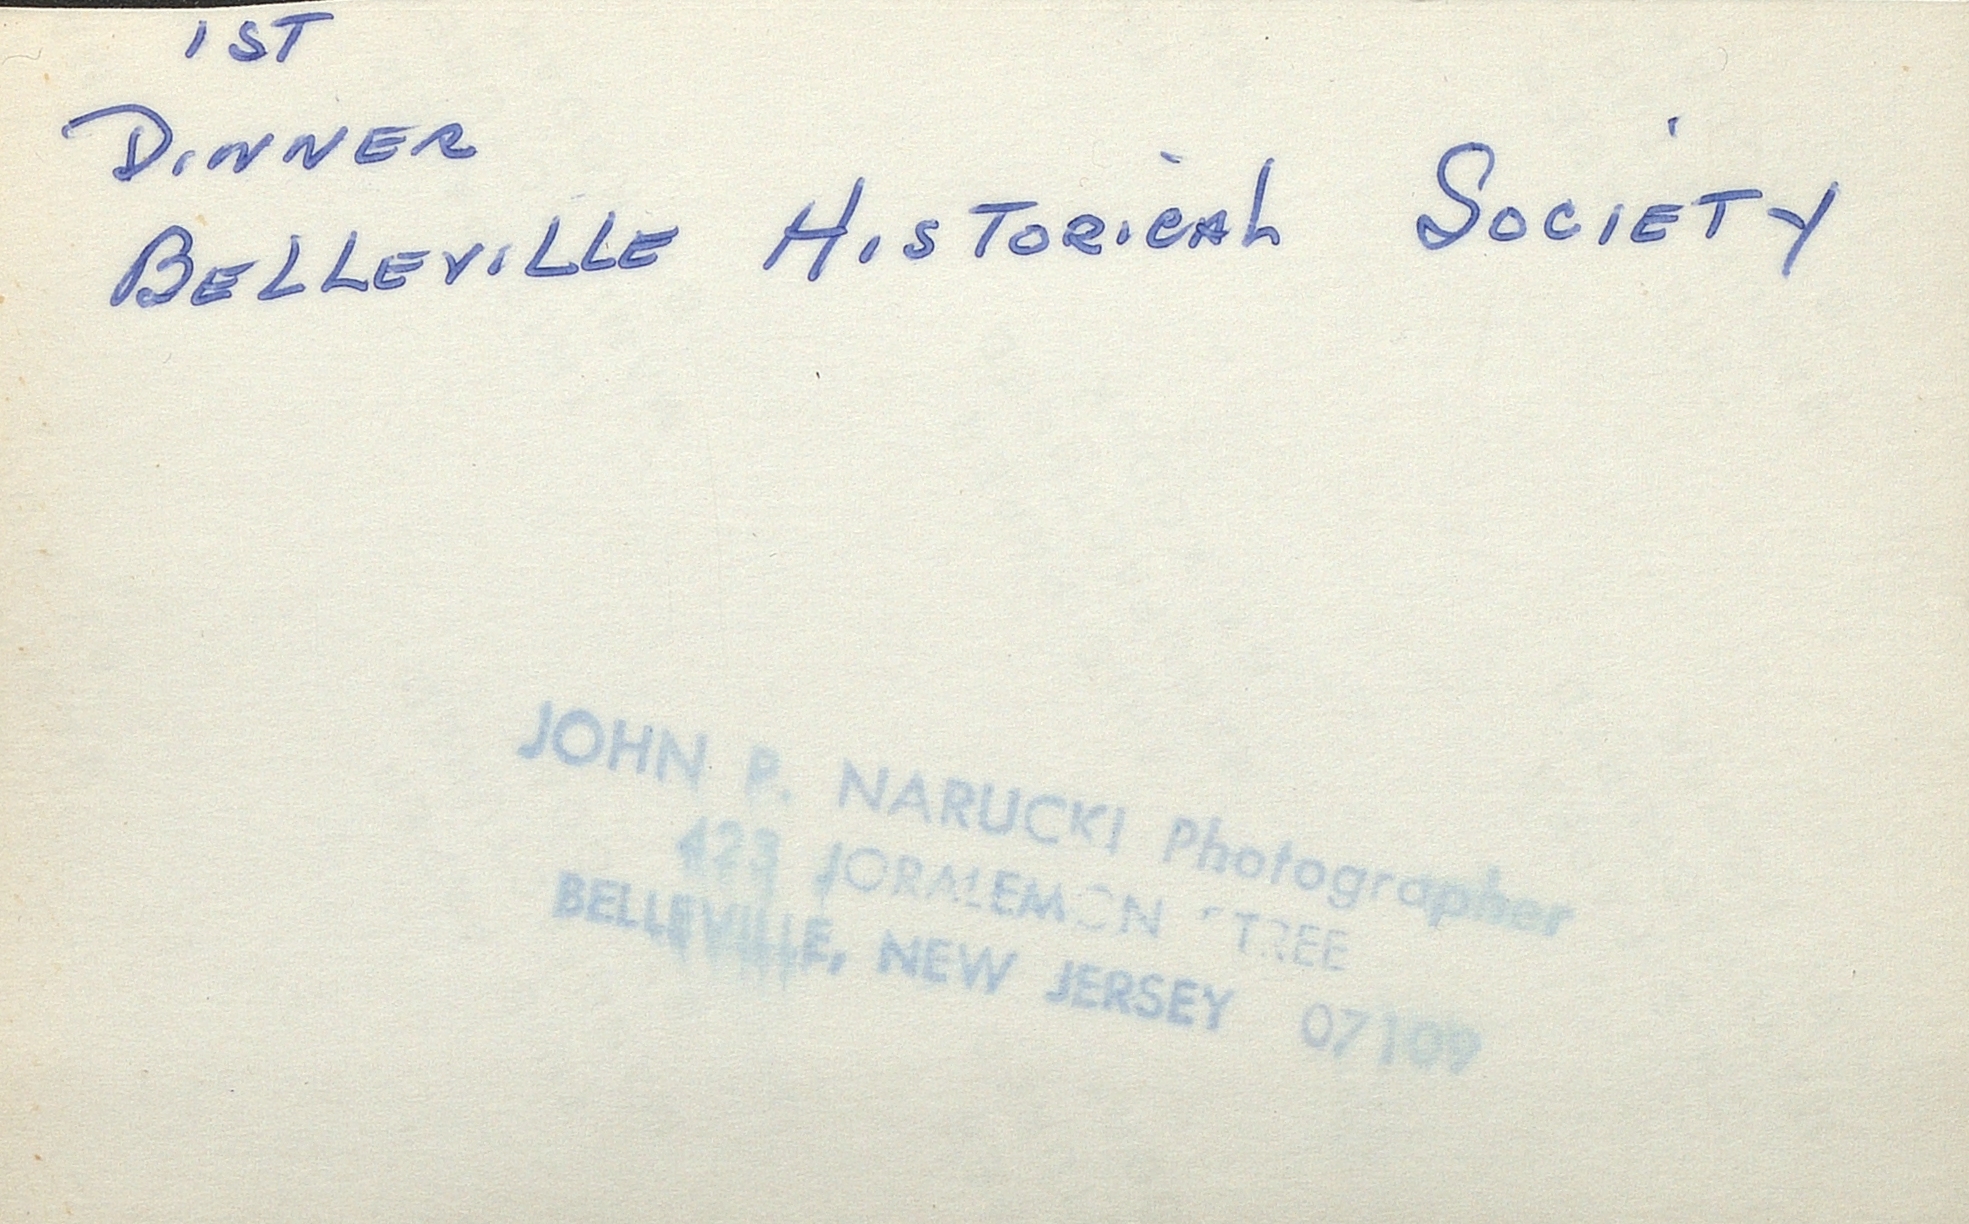 1ST
DINNER
BELLEVILLE HISTORICAL SOCIETY
JOHN P. NARUCKI Photographer
423 JORALEMON STREE
BELLEVILLE, NEW JERSEY 07109